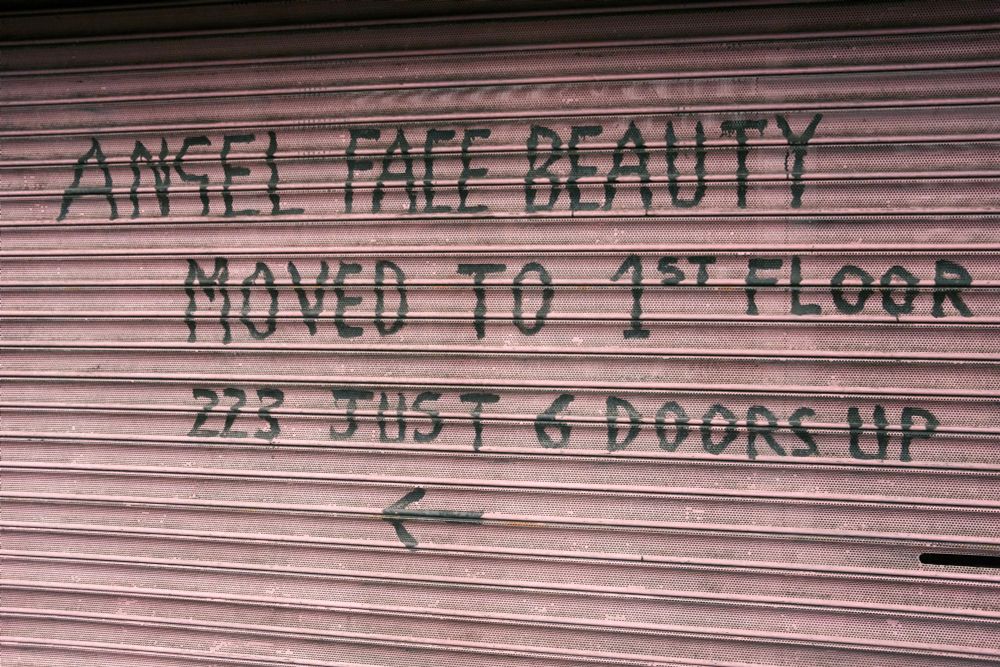 ANGEL FACE BEAUTY
MOVED TO 1ST FLOOR
223 JUST 6 DOORS UP
←